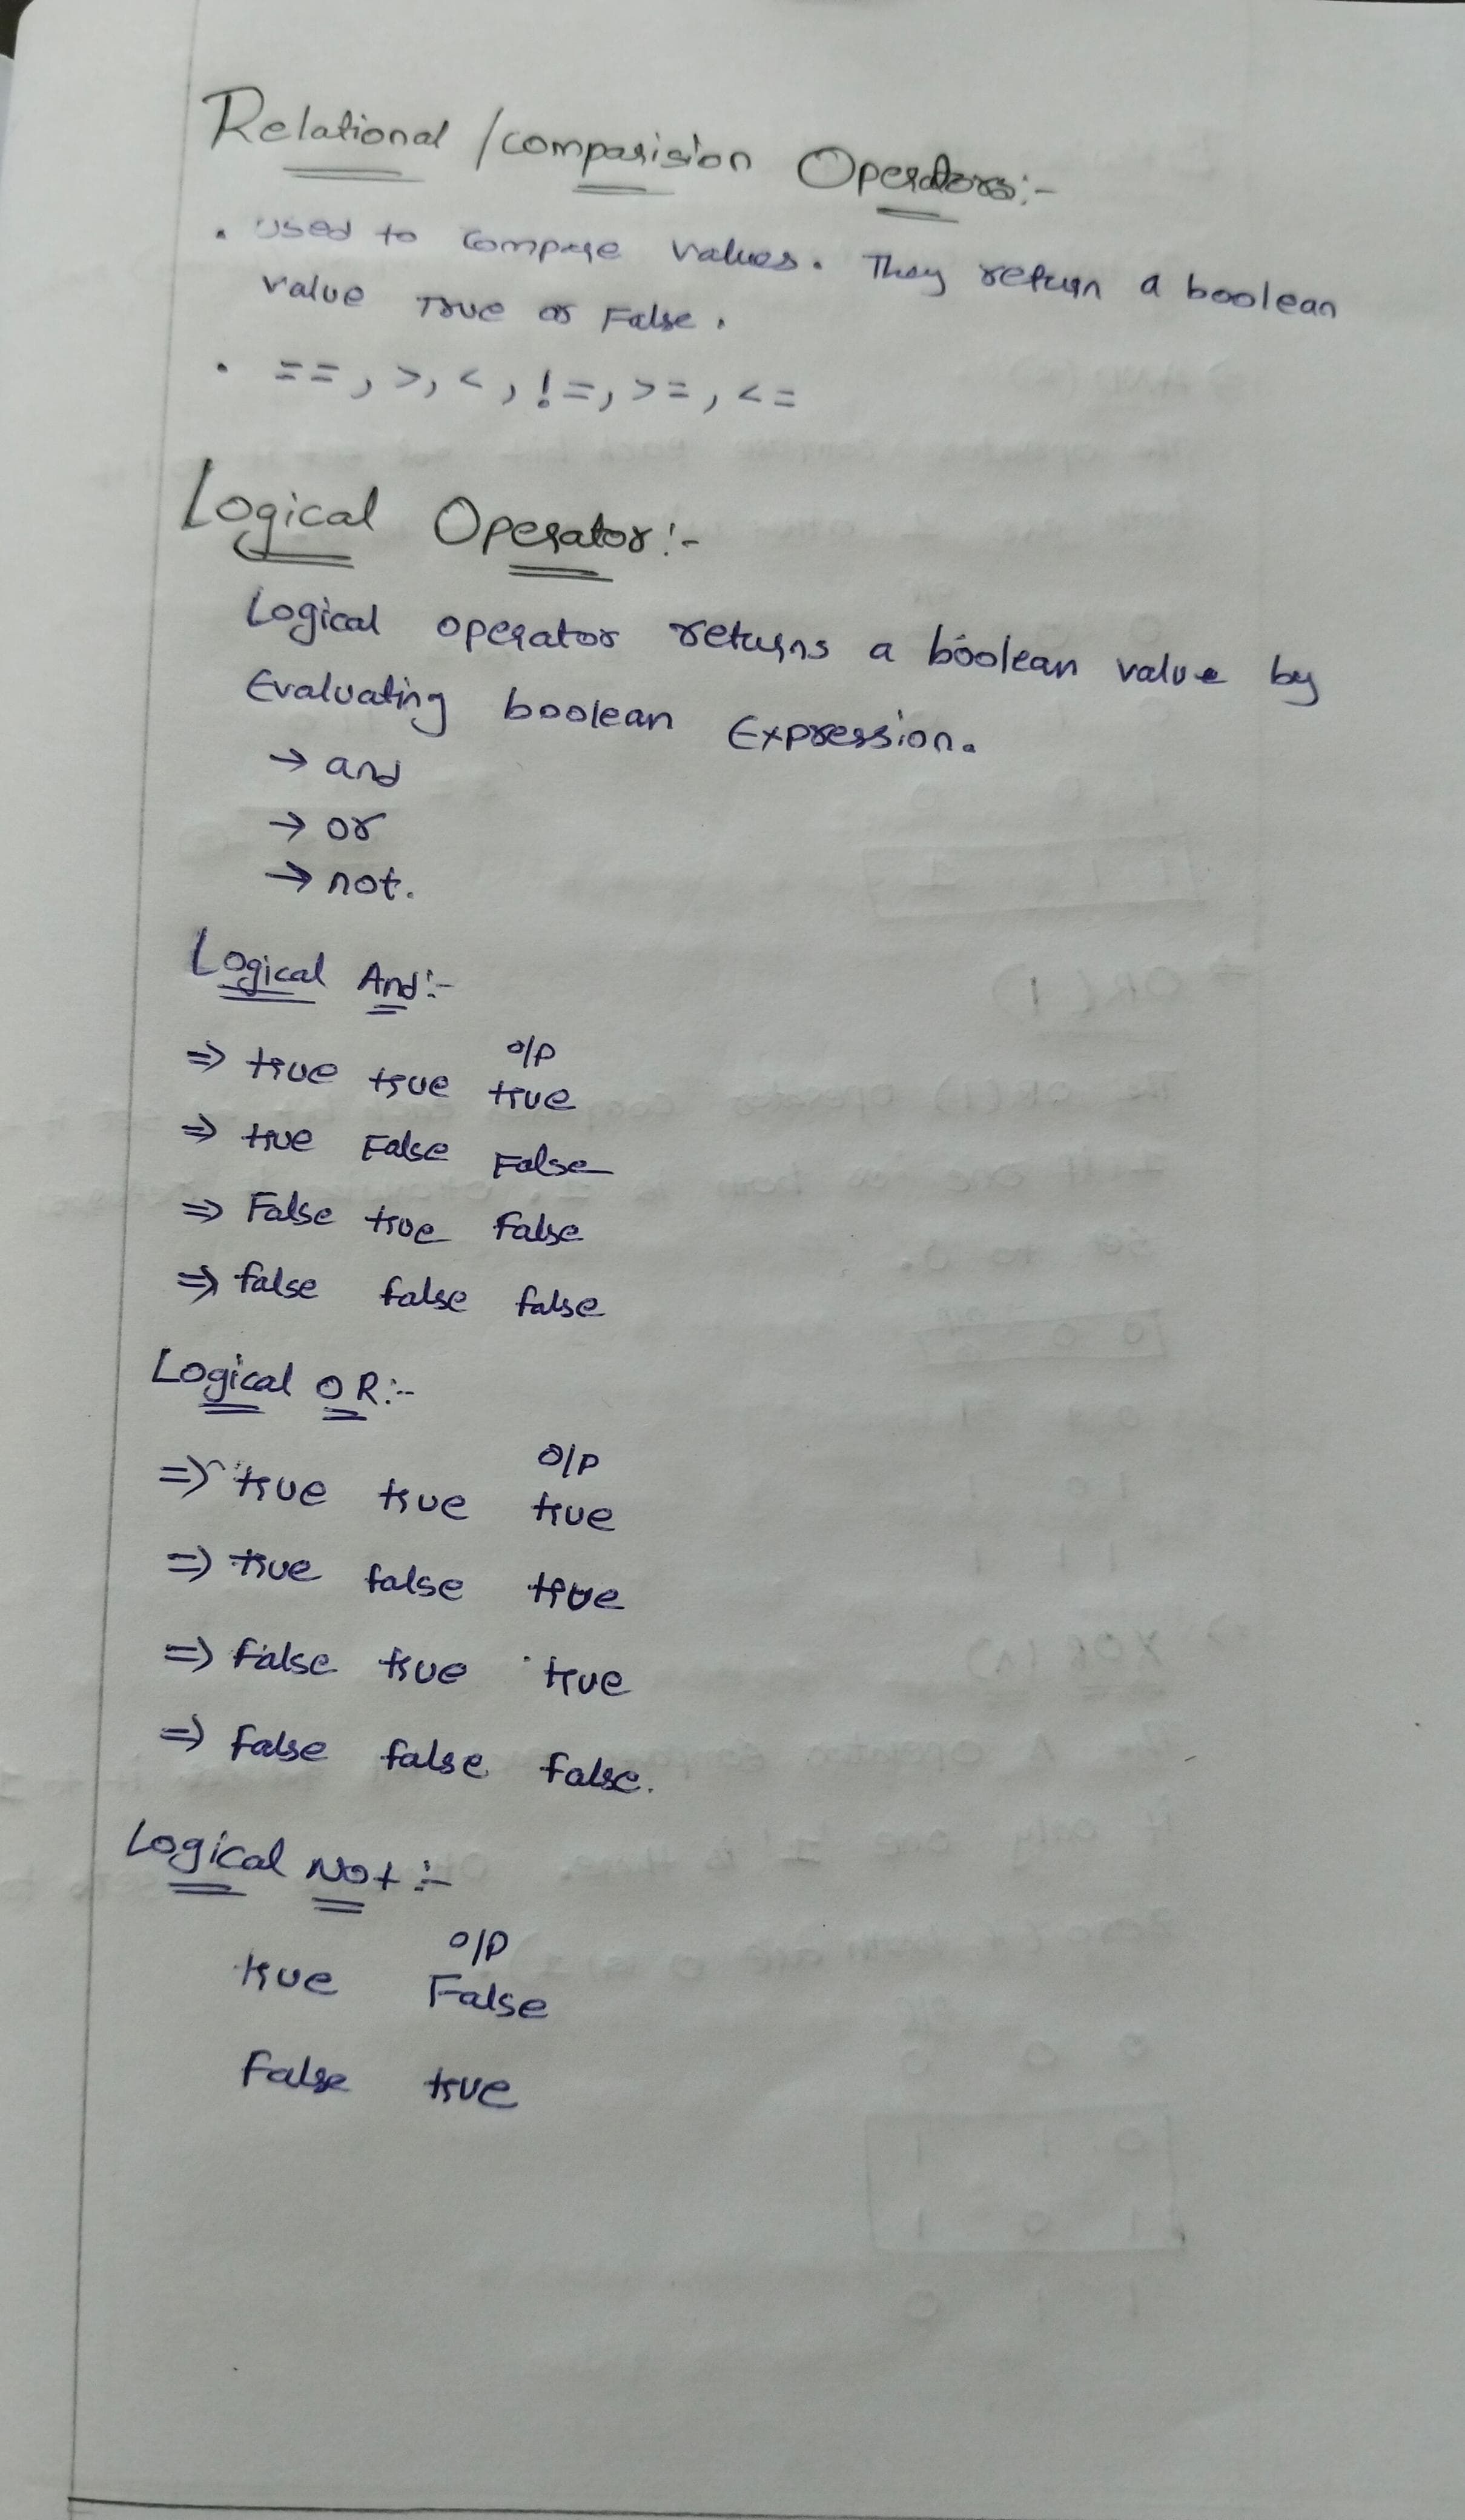 Relational /comparision Operators:-
• Used to compare values. They return a boolean
value True or False.
• ==, >, <, !=, >=, <=
Logical Operator:-
Logical operator returns a boolean value by
Evaluating boolean Expression.
→ and
→ or
→ not.
Logical And:-
o/p
⇒ true true true
⇒ true False False
⇒ False true False
⇒ false false false
Logical OR:-
O/P
⇒ true true true
⇒ true false true
⇒ false true true
⇒ false false false.
Logical Not:-
o/p
true False
False true